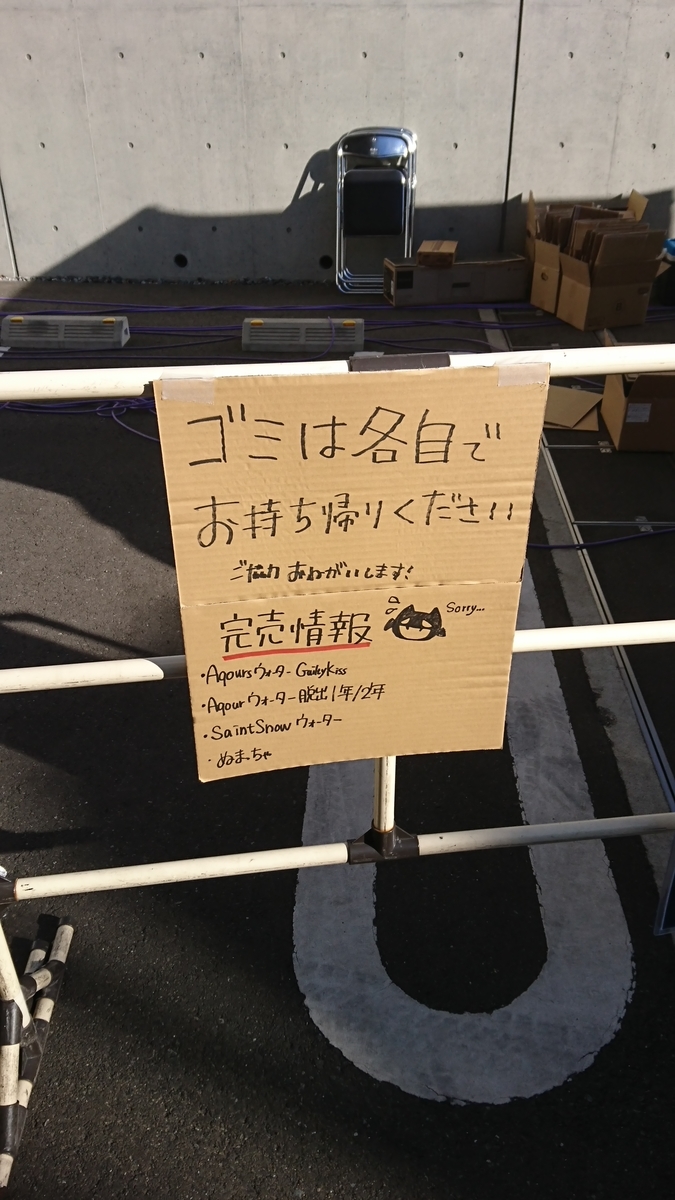 ゴミは各自で
お持ち帰りください
ご協力おねがいします!
完売情報
Sorry...
・Aqoursウォーター GuiltyKiss
・Aqourウォーター脱出1年/2年
・SaintSnowウォーター
・ぬまっちゃ